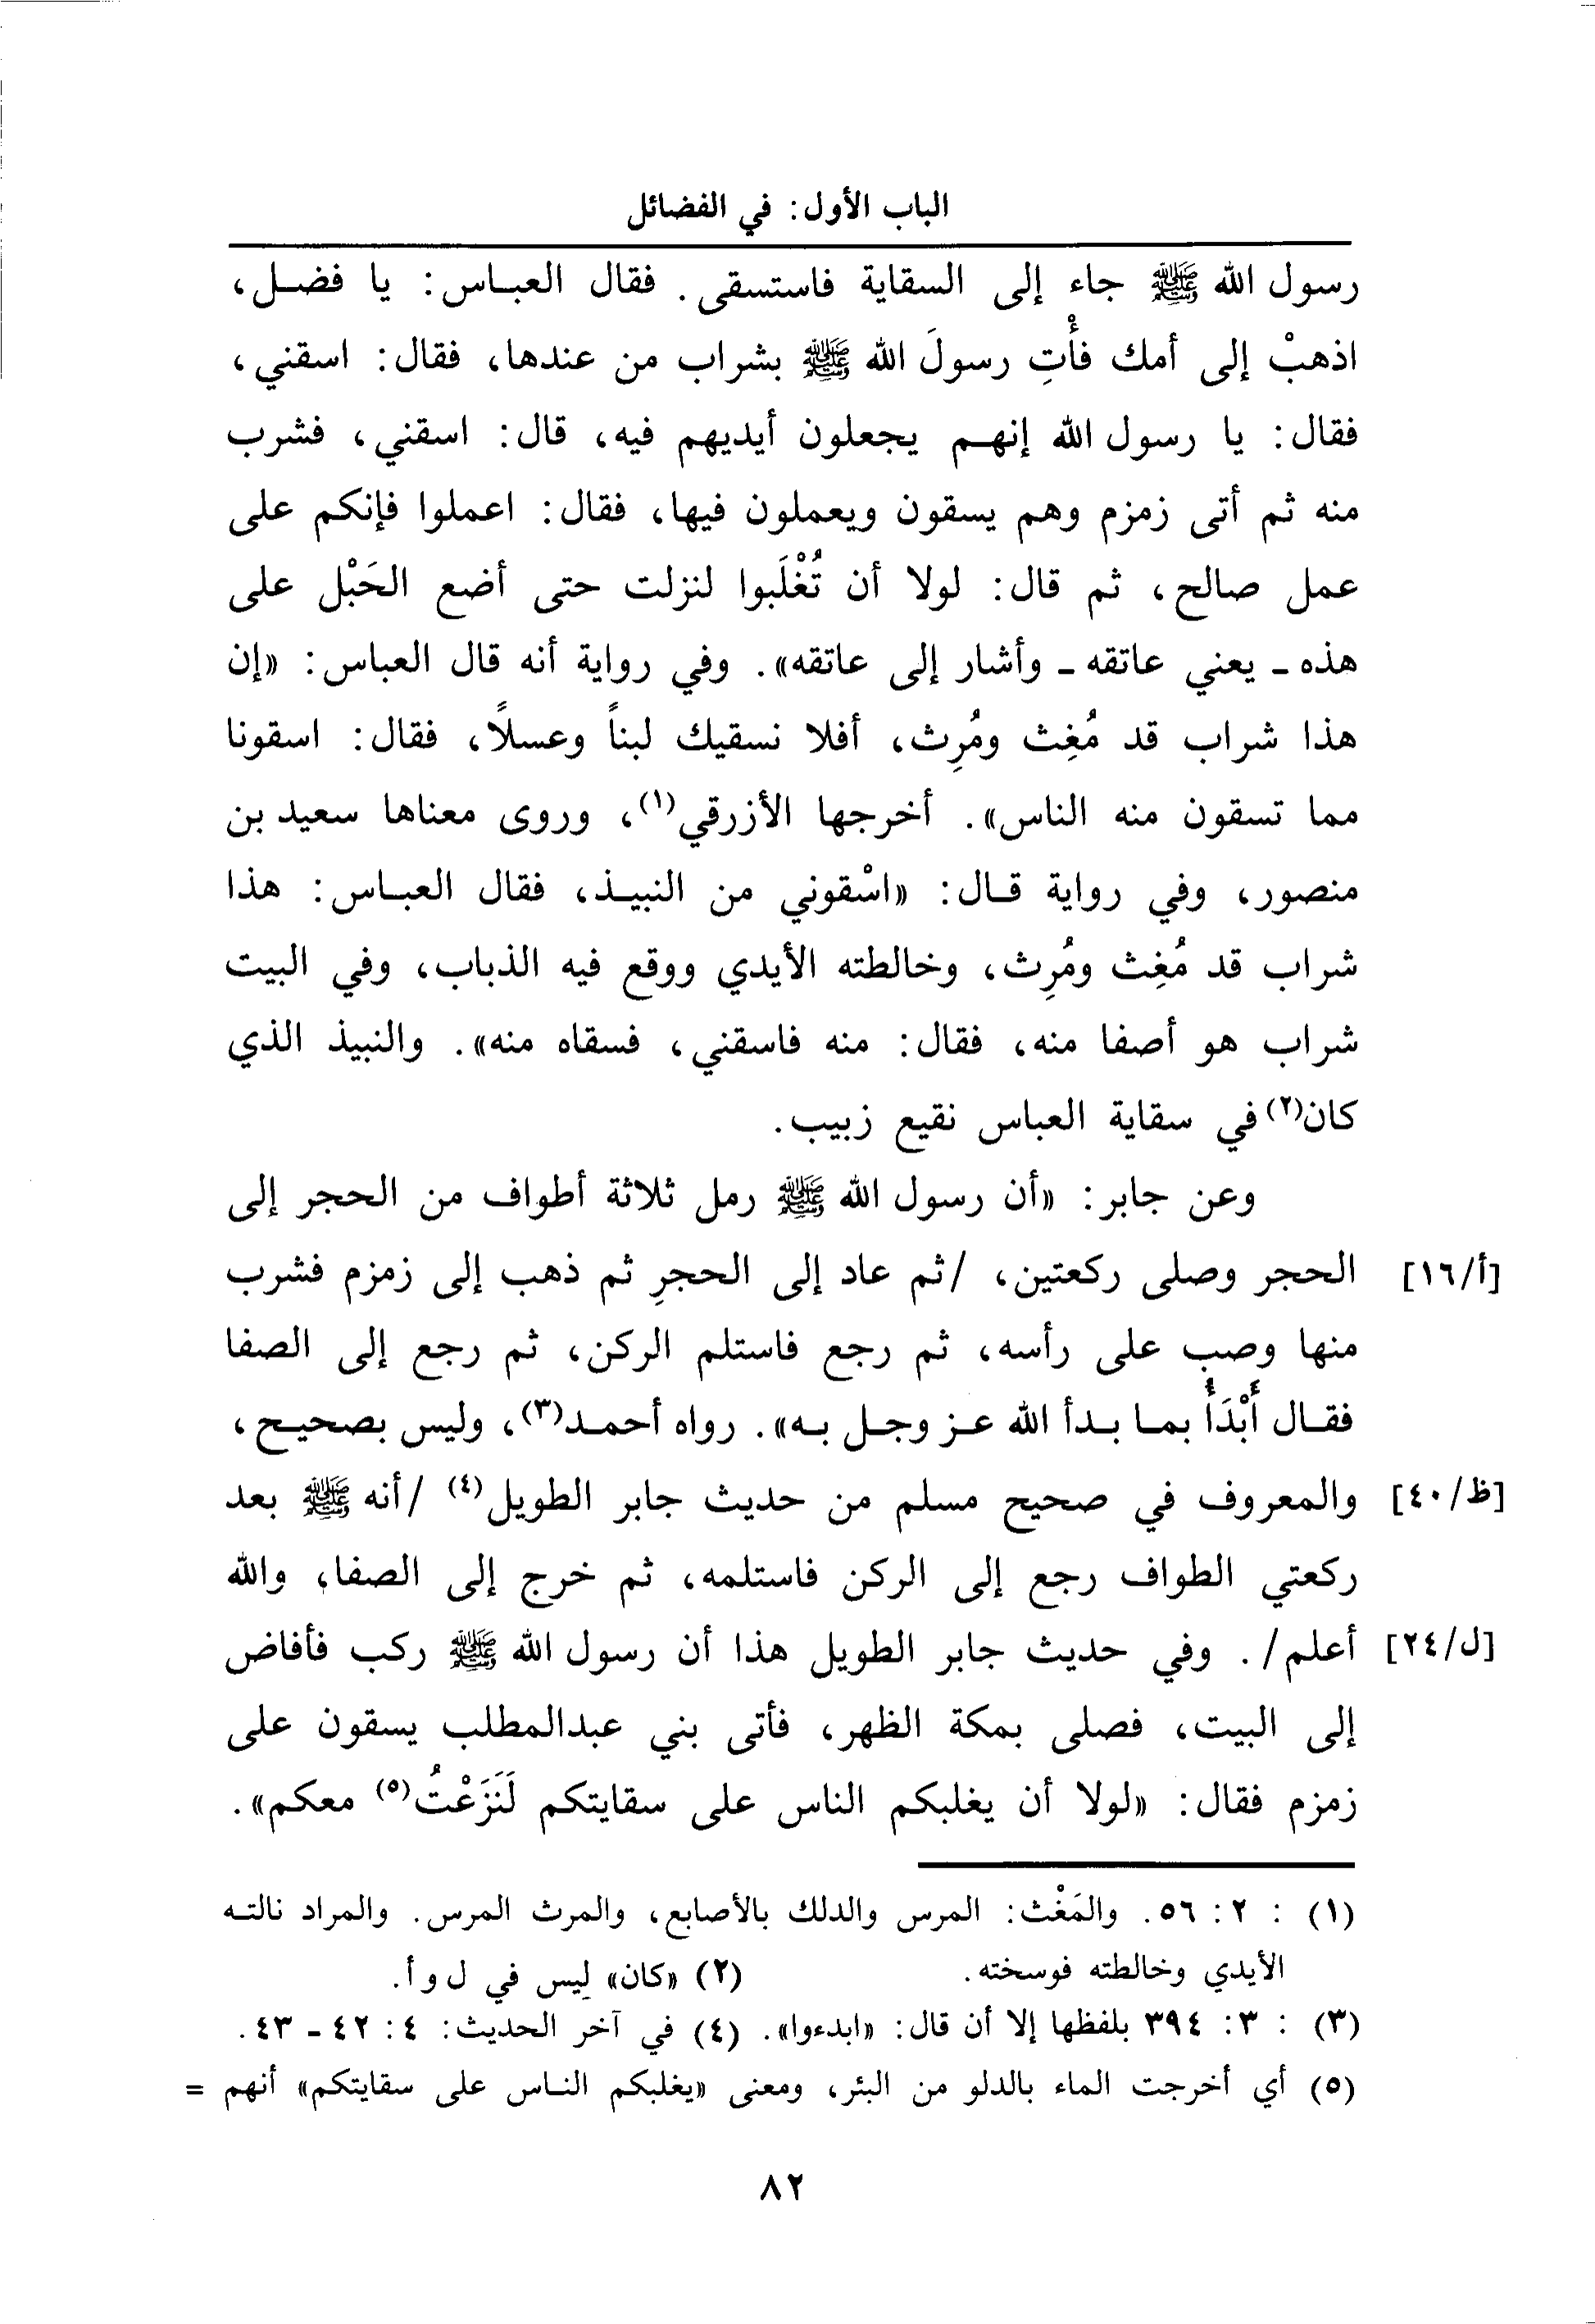 الباب الأول: في الفضائل
رسول الله ﷺ جاء إلى السقاية فاستسقى. فقال العباس: يا فضل،
اذهبْ إلى أمك فأْتِ رسولَ الله ﷺ بشراب من عندها، فقال: اسقني،
فقال: يا رسول الله إنهم يجعلون أيديهم فيه، قال: اسقني، فشرب
منه ثم أتى زمزم وهم يسقون ويعملون فيها، فقال: اعملوا فإنكم على
عمل صالح، ثم قال: لولا أن تُغْلَبوا لنزلت حتى أضع الحَبْل على
هذه - يعني عاتقه - وأشار إلى عاتقه». وفي رواية أنه قال العباس: «إن
هذا شراب قد مُغِث ومُرِث، أفلا نسقيك لبناً وعسلاً، فقال: اسقونا
مما تسقون منه الناس». أخرجها الأزرقي(١)، وروى معناها سعيد بن
منصور، وفي رواية قال: «اسْقوني من النبيذ، فقال العباس: هذا
شراب قد مُغِث ومُرِث، وخالطته الأيدي ووقع فيه الذباب، وفي البيت
شراب هو أصفا منه، فقال: منه فاسقني، فسقاه منه». والنبيذ الذي
كان(٢) في سقاية العباس نقيع زبيب.
وعن جابر: «أن رسول الله ﷺ رمل ثلاثة أطواف من الحجر إلى
[أ/١٦] الحجر وصلى ركعتين، /ثم عاد إلى الحجرِ ثم ذهب إلى زمزم فشرب
منها وصب على رأسه، ثم رجع فاستلم الركن، ثم رجع إلى الصفا
فقال أَبْدَأُ بما بدأ الله عز وجل به». رواه أحمد(٣)، وليس بصحيح،
[ظ/٤٠] والمعروف في صحيح مسلم من حديث جابر الطويل(٤) /أنه ﷺ بعد
ركعتي الطواف رجع إلى الركن فاستلمه، ثم خرج إلى الصفا، والله
[ل/٢٤] أعلم/. وفي حديث جابر الطويل هذا أن رسول الله ﷺ ركب فأفاض
إلى البيت، فصلى بمكة الظهر، فأتى بني عبدالمطلب يسقون على
زمزم فقال: «لولا أن يغلبكم الناس على سقايتكم لَنَزَعْتُ(٥) معكم».
(١) : ٢ : ٥٦. والمَغْث: المرس والدلك بالأصابع، والمرث المرس. والمراد نالته
الأيدي وخالطته فوسخته. (٢) «كان» ليس في ل و أ.
(٣) : ٣: ٣٩٤ بلفظها إلا أن قال: «ابدءوا». (٤) في آخر الحديث: ٤: ٤٢ - ٤٣.
(٥) أي أخرجت الماء بالدلو من البئر، ومعنى «يغلبكم الناس على سقايتكم» أنهم =
٨٢